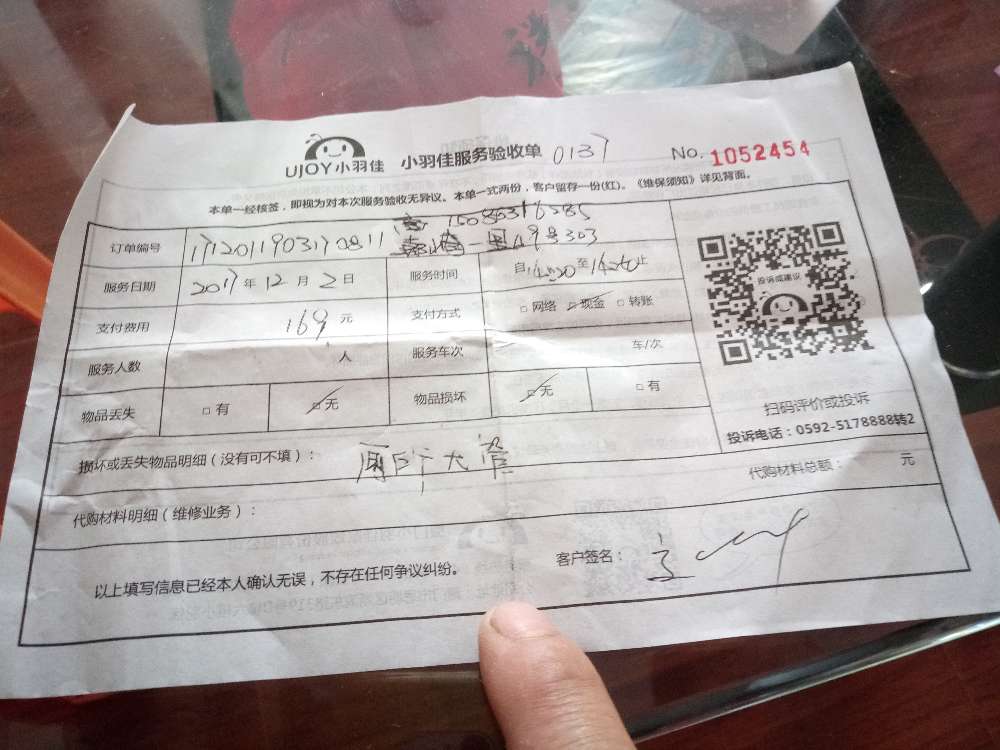 UJOY小羽佳 小羽佳服务验收单 0137 No. 1052454
本单一经核签，即视为对本次服务验收无异议。本单一式两份，客户留存一份(红)。《维保须知》详见背面。
订单编号
服务日期 2017年12月2日 服务时间 自 至 止
支付费用 169元 支付方式 □网络 □现金 □转账
服务人数 人 服务车次 车/次
物品丢失 □有 □无 物品损坏 □无 □有
投诉或建议
扫码评价或投诉
投诉电话：0592-5178888转2
损坏或丢失物品明细（没有可不填）：
代购材料明细（维修业务）： 代购材料总额： 元
以上填写信息已经本人确认无误，不存在任何争议纠纷。 客户签名：